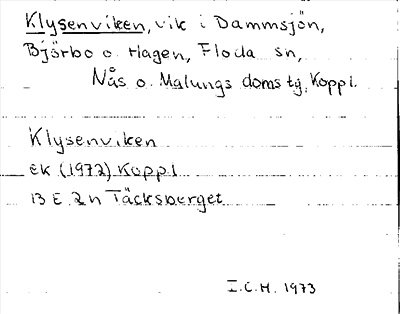 Klysenviken, vik i Dammsjön,
Björbo o. Hagen, Floda sn,
Nås o. Malungs doms tg, Koppl.
Klysenviken
EK (1972) Koppl
13 E 2 n Täcksberget
I.C.H. 1973